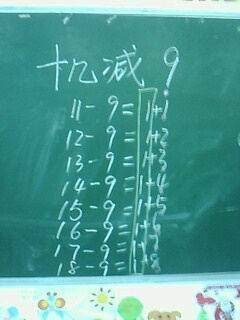 十几减9
11-9=1+1
12-9=1+2
13-9=1+3
14-9=1+4
15-9=1+5
16-9=1+6
17-9=1+7
18-9=1+8